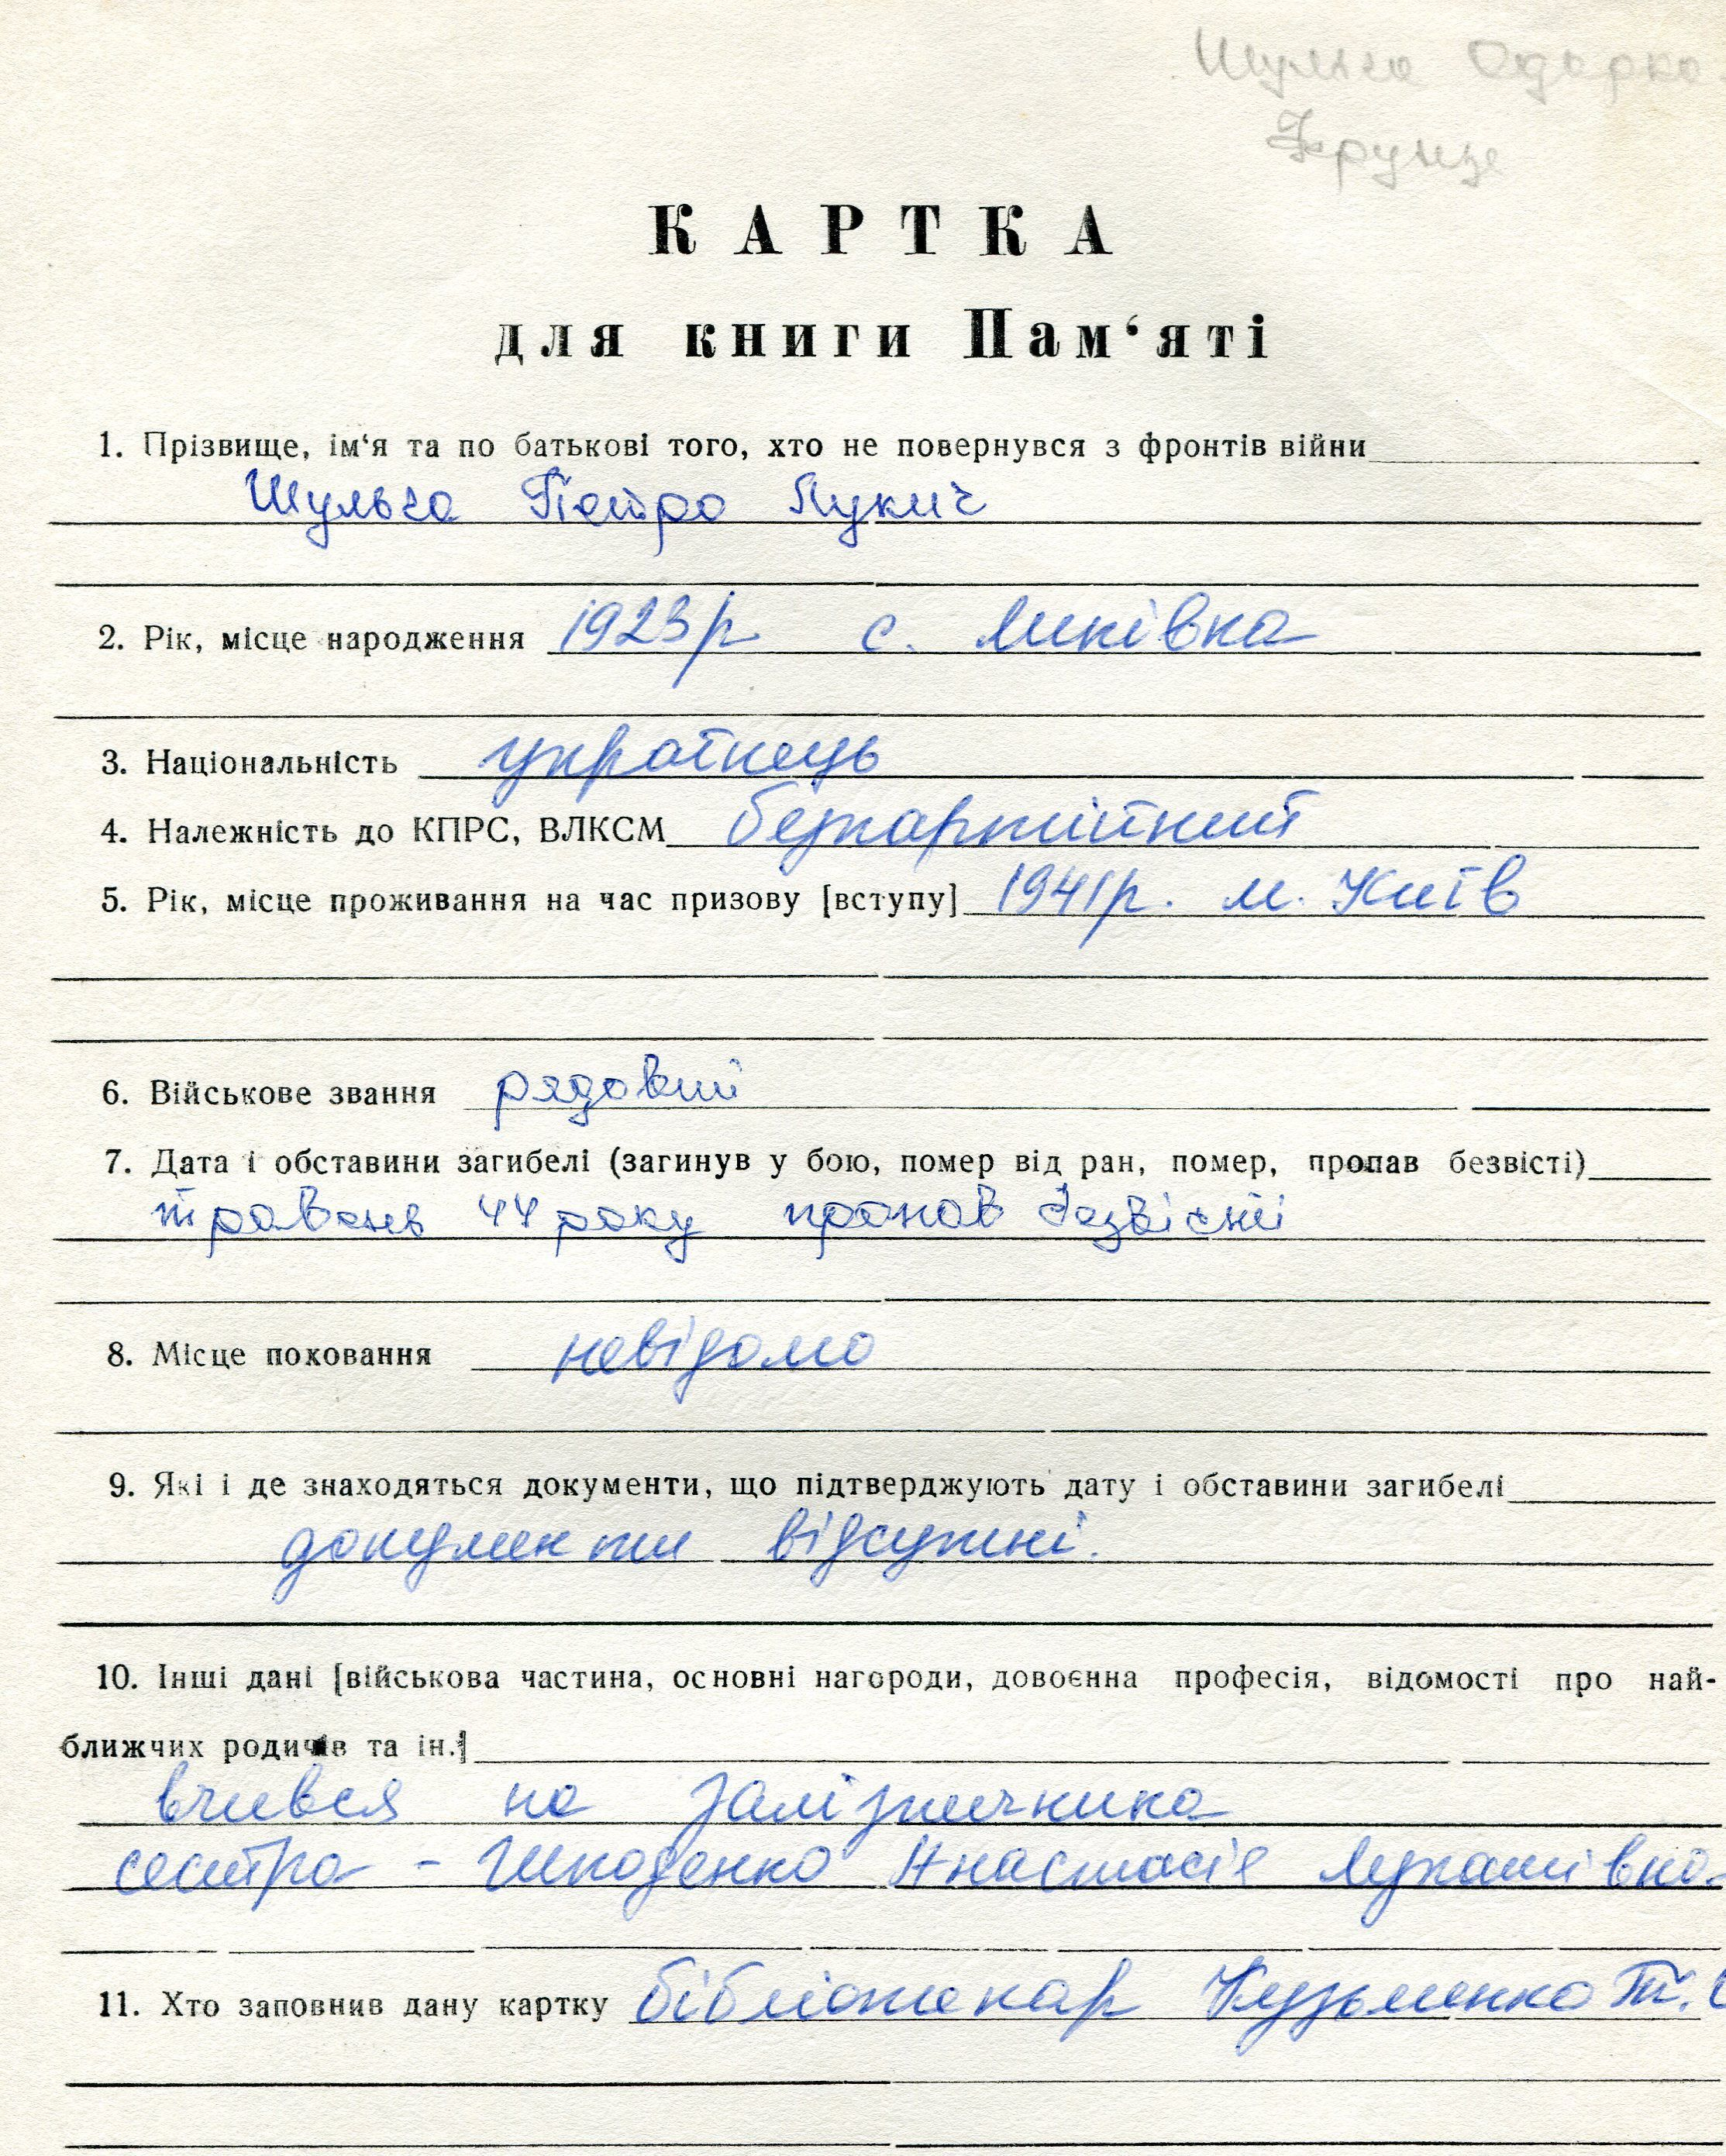 Шульга Одарка
Фрунзе
КАРТКА
для книги Пам‘яті
1. Прізвище, ім‘я та по батькові того, хто не повернувся з фронтів війни
Шульга Петро Лукич
2. Рік, місце народження 1923р с. Липівка
3. Національність українець
4. Належність до КПРС, ВЛКСМ безпартійний
5. Рік, місце проживання на час призову [вступу] 1941р. м. Київ
6. Військове звання рядовий
7. Дата і обставини загибелі (загинув у бою, помер від ран, помер, пропав безвісті)
травень 44 року пропав безвісті
8. Місце поховання невідомо
9. Які і де знаходяться документи, що підтверджують дату і обставини загибелі
документи відсутні.
10. Інші дані [військова частина, основні нагороди, довоєнна професія, відомості про най-
ближчих родичів та ін.]
вчився на залізничника
сестра - Шкоденко Анастасія
11. Хто заповнив дану картку бібліотекар Кузьменко Т.